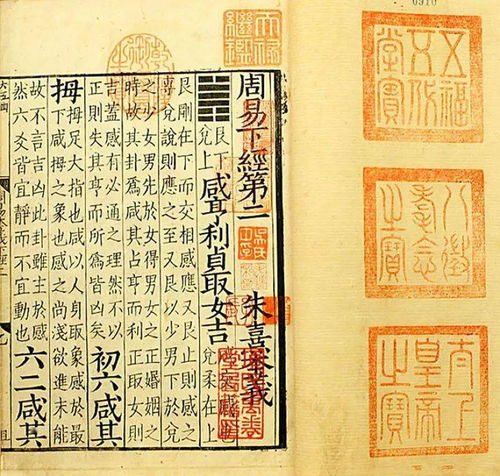 0910
五福五代堂寶
八徵耄念之寶
太上皇帝之寶
天祿繼鑑
周易下經第二
朱熹本義
艮下
兌上
咸亨利貞取女吉
兌柔在上
艮剛在下而交相感應又艮止則感之
專兌說則應之至又艮以少男下於兌
之少女男先於女得男女之正婚姻之
時故其卦爲咸其占亨而利正取女則
吉蓋感有必通之理然不以
正則失其亨而所爲皆凶矣
初六咸其
拇
拇足大指也咸以人身取象感於最
下咸拇之象也感之尚淺欲進未能
故不言吉凶此卦雖主於感
然六爻皆宜靜而不宜動也
六二咸其